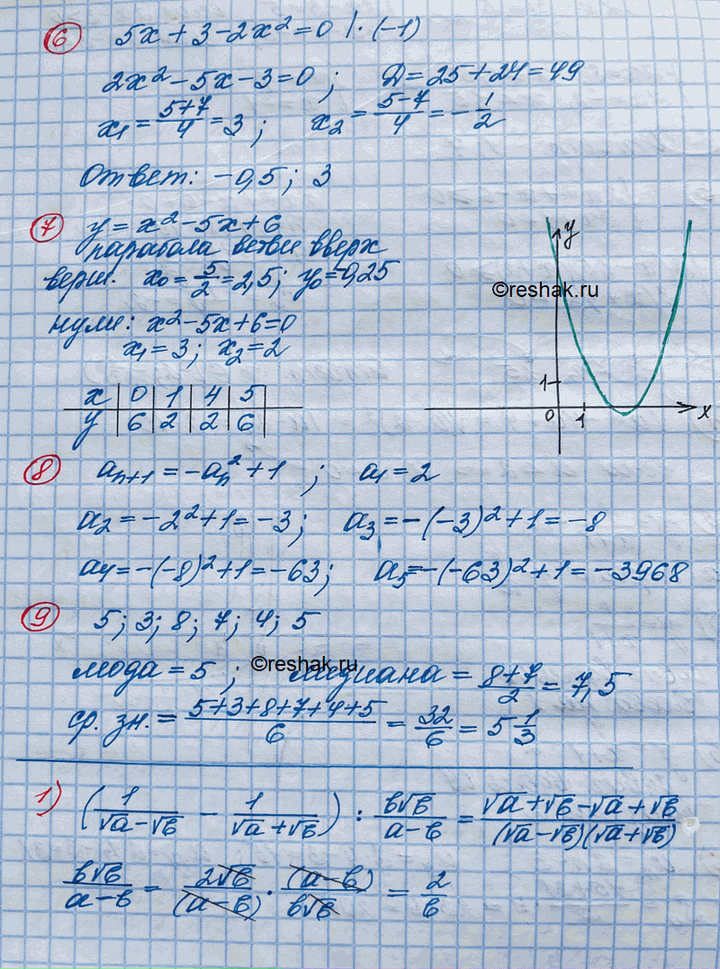 6 5x + 3 - 2x² = 0 | · (-1)
2x² - 5x - 3 = 0 ; D = 25 + 24 = 49
x₁ = (5+7)/4 = 3 ; x₂ = (5-7)/4 = -1/2
Ответ: -0,5 ; 3
7 y = x² - 5x + 6
парабола ветви вверх
верш. x₀ = 5/2 = 2,5 ; y₀ = -0,25
нули: x² - 5x + 6 = 0
x₁ = 3 ; x₂ = 2
x | 0 | 1 | 4 | 5
y | 6 | 2 | 2 | 6
y
©reshak.ru
1
0 1 x
8 aₙ₊₁ = -aₙ² + 1 ; a₁ = 2
a₂ = -2² + 1 = -3 ; a₃ = -(-3)² + 1 = -8
a₄ = -(-8)² + 1 = -63 ; a₅ = -(-63)² + 1 = -3968
9 5 ; 3 ; 8 ; 7 ; 4 ; 5
©reshak.ru
мода = 5 ; медиана = (8+7)/2 = 7,5
ср. зн. = (5+3+8+7+4+5)/6 = 32/6 = 5 1/3
1) (1/(√a-√b) - 1/(√a+√b)) : b√b/(a-b) = (√a+√b-√a+√b)/((√a-√b)(√a+√b))
b√b/(a-b) = 2√b/(a-b) · (a-b)/(b√b) = 2/b